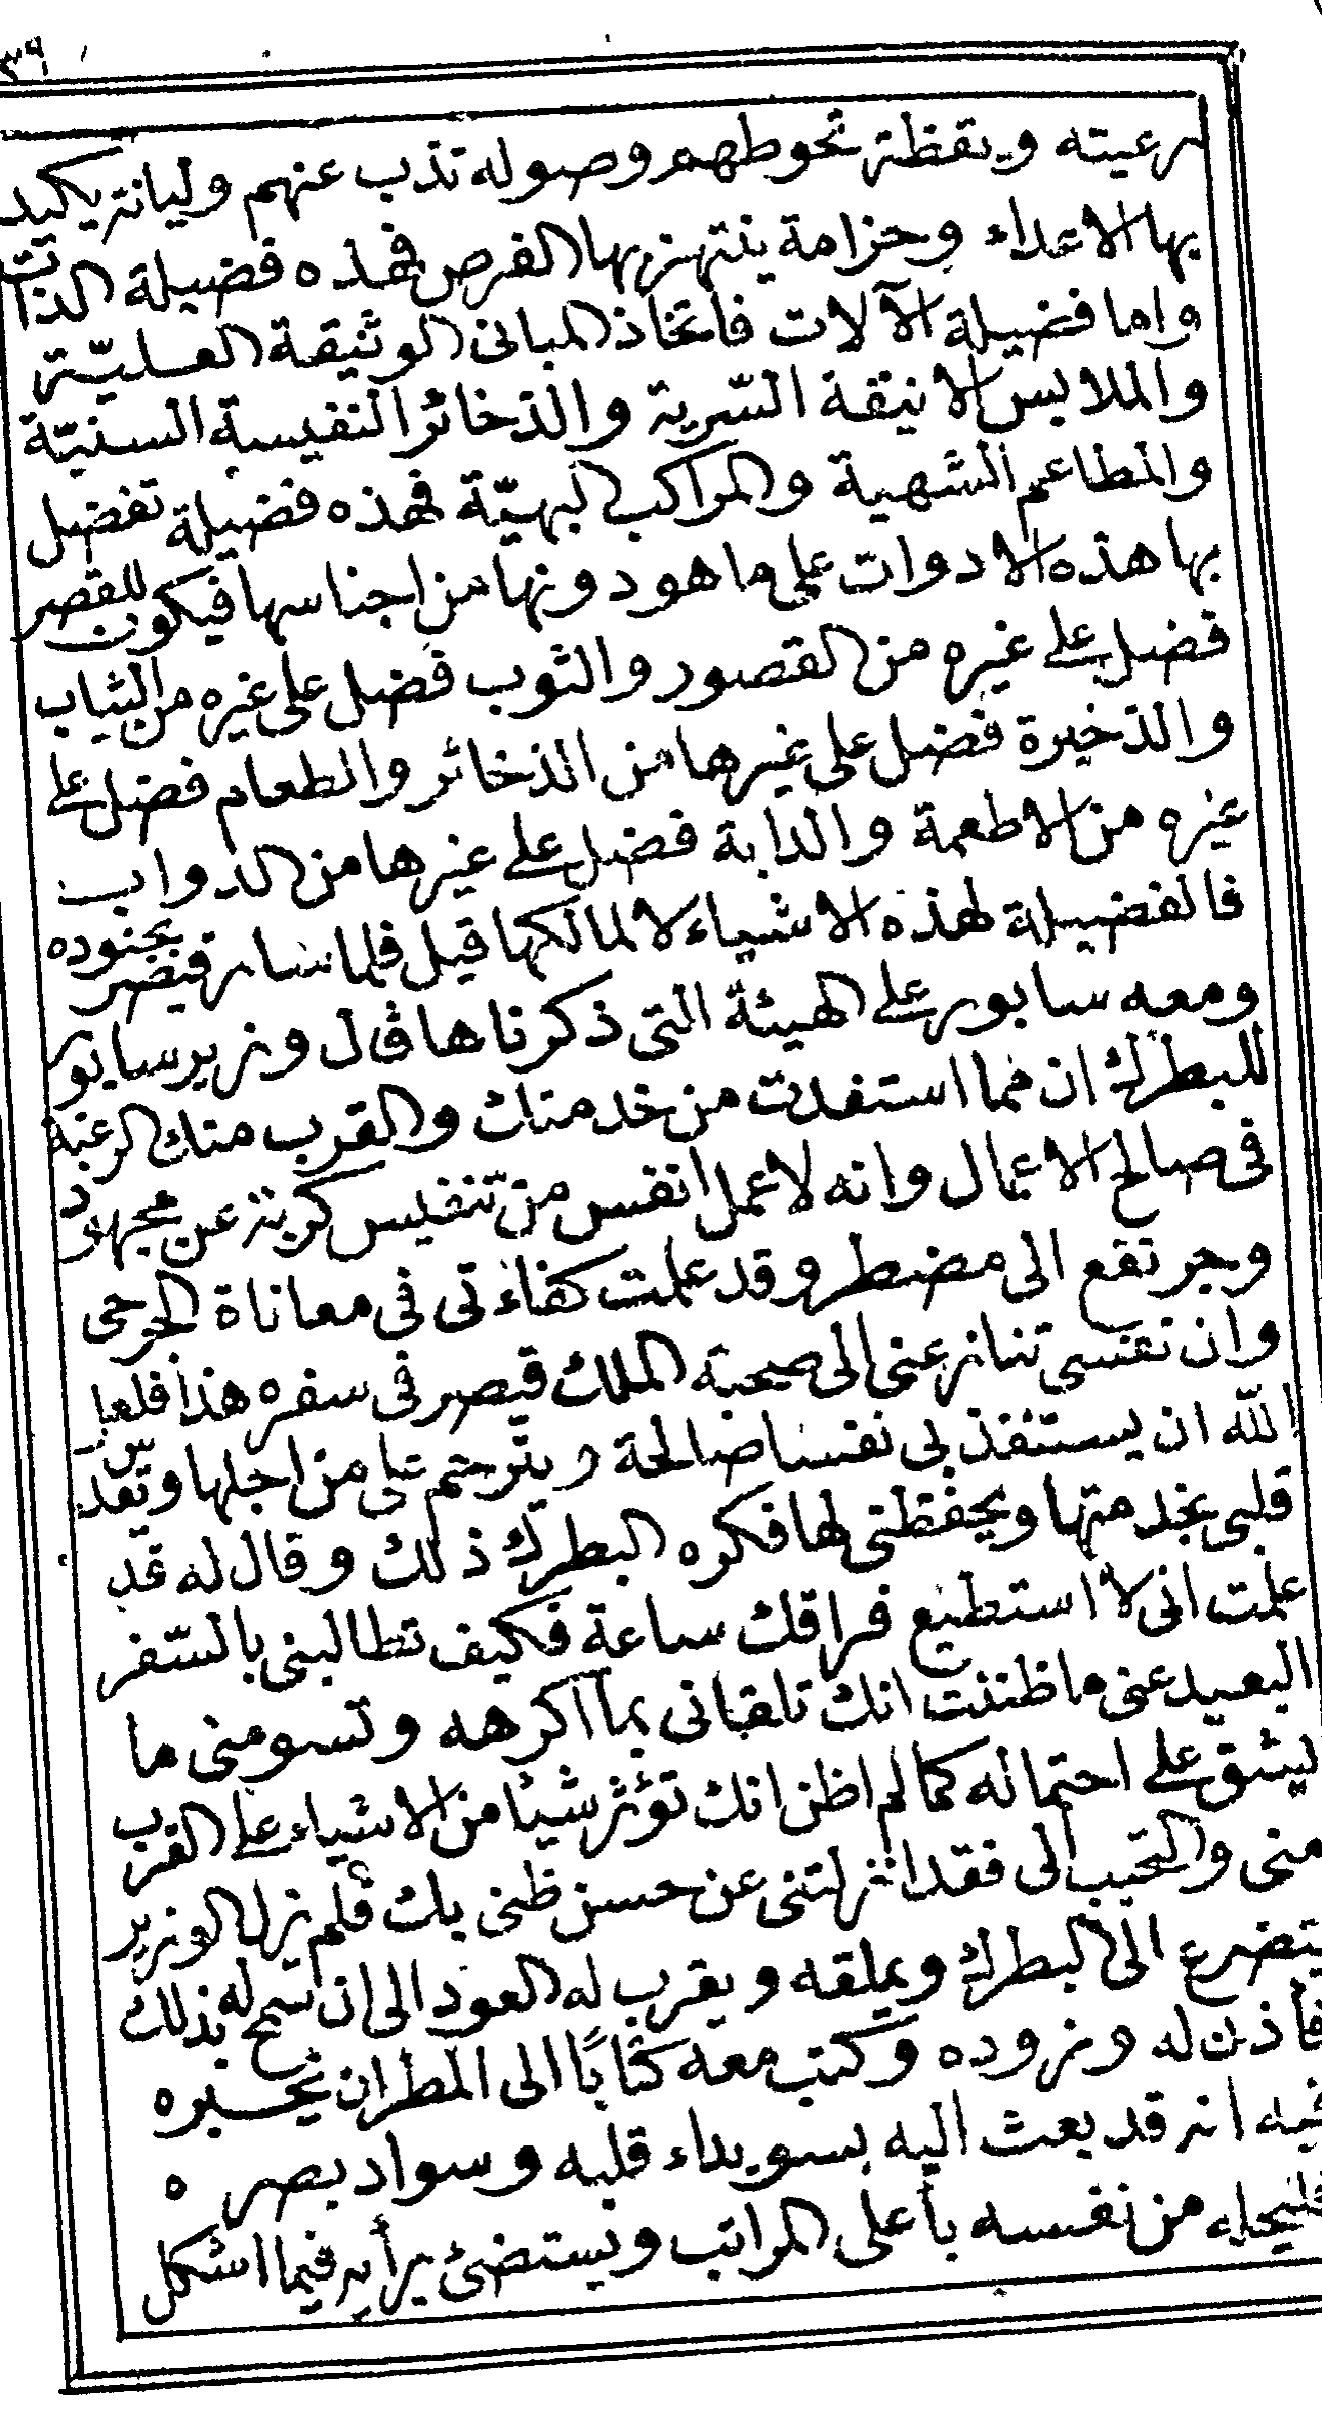 ٣٦
رعيته ويقظة تحوطهم وصوله تذب عنهم وليانة يكيد
بها الاعداء وحزامة ينتهز بها الفرص فهذه فضيلة الذات
واما فضيلة الآلات فاتخاذ المبانى الوثيقة العليّة
والملابس الانيقة السّرية والذخائر النفيسة السنيّة
والمطاعم الشهية والمراكب البهيّة فهذه فضيلة تفضل
بها هذه الادوات على ما هو دونها من اجناسها فيكون للقصر
فضل على غيره من القصور والثوب فضل على غيره من الثياب
والذخيرة فضل على غيرها من الذخائر والطعام فضل على
غيره من الاطعمة والدابة فضل على غيرها من الدواب
فالفضيلة لهذه الاشياء لا لمالكها قيل فلما سار قيصر بجنوده
ومعه سابور على الهيئة التى ذكرناها قال وزير سابور
للبطرك ان مما استفدت من خدمتك والقرب منك الرغبة
فى صالح الاعمال وانه لا عمل انفس من تنفيس كربة عن مجهود
وجر نفع الى مضطر وقد علمت كفاءتى فى معاناة الجرحى
وان نفسى تنازعنى الى صحبة الملك قيصر فى سفره هذا فلعل
الله ان يستنقذ بى نفسا صالحة ويترحم على من اجلها وتقدس
قلبى بخدمتها ويحفظنى لها فكره البطرك ذلك وقال له قد
علمت انى لا استطيع فراقك ساعة فكيف تطالبنى بالسّفر
البعيد عنى ما ظننت انك تلقانى بما اكرهه وتسومنى ما
يشق على احتماله كما لم اظن انك تؤثر شيئا من الاشياء على القرب
منى والتحبب الى فقد انزلتنى عن حسن ظنى بك فلم يزل الوزير
يتضرع الى البطرك ويملقه ويقرب له العود الى ان سمح له بذلك
فأذن له وزوده وكتب معه كتابًا الى المطران يخبره
فيه انه قد بعث اليه بسويداء قلبه وسواد بصره
فليحله من نفسه بأعلى المراتب ويستضئ برأيه فيما اشكل